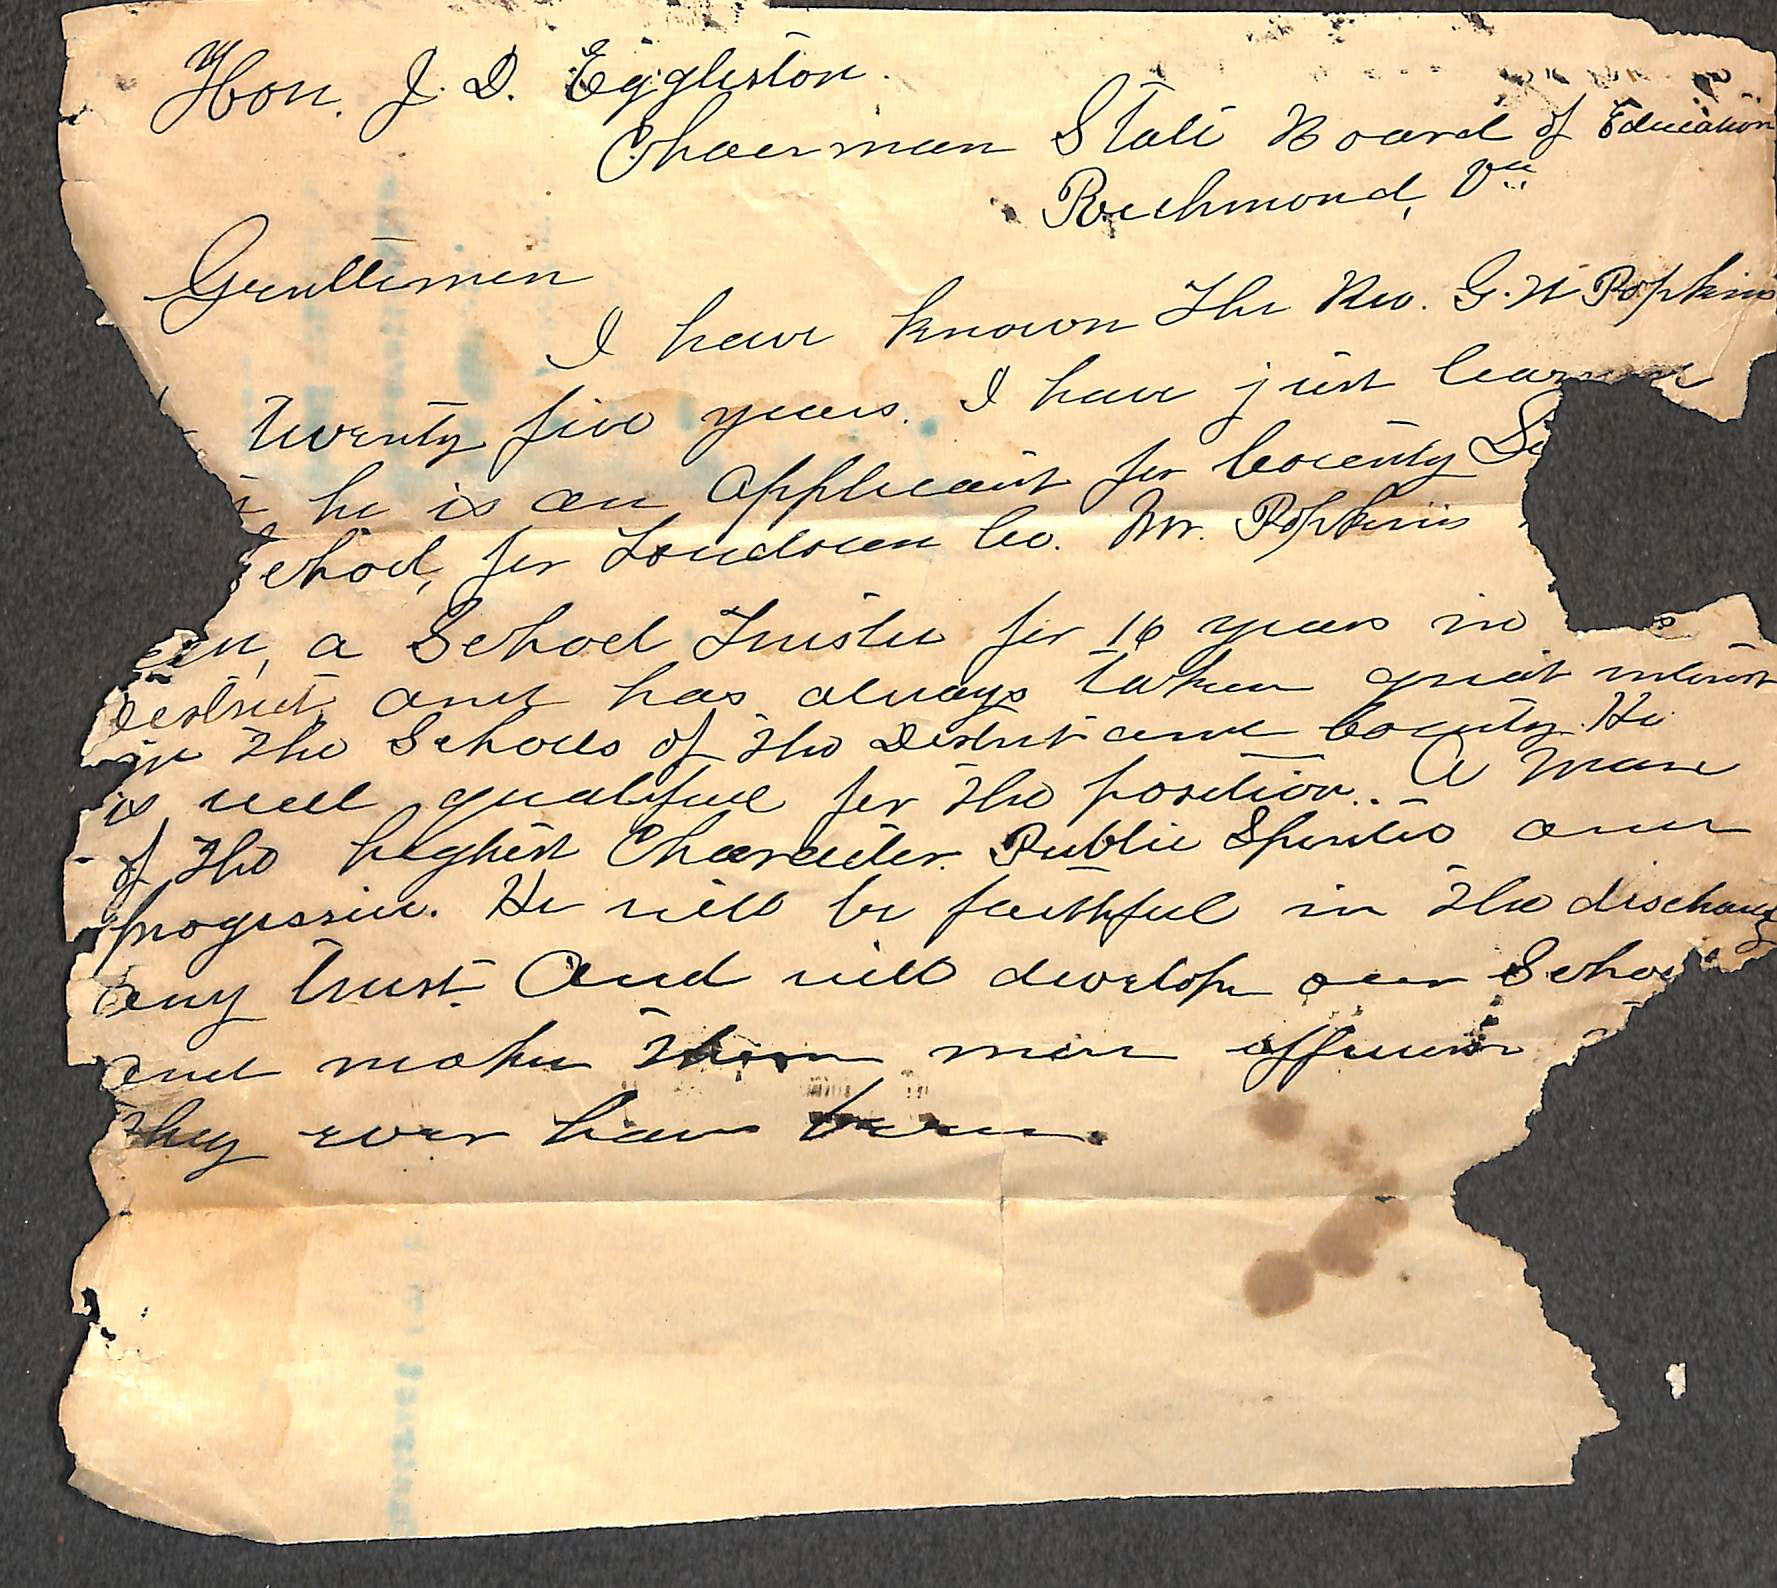 Hon. J. D. Eggleston
Chairman State Board of Education
Richmond, Va
Gentlemen
I have known The Rev. G. W Popkins
Twenty five years. I have just learned
he is an applicant for County Su
chool, for Loudoun Co. Mr. Popkins
een, a School Trustee for 16 years in
District and has always taken great interest
in The Schools of The District and County. He
is well qualified for The position. A man
of The highest Character. Public Spirited and
progressive. He will be faithful in The discharge
any Trust. And will develope our Schoo
and make Them more efficient
They ever have been.